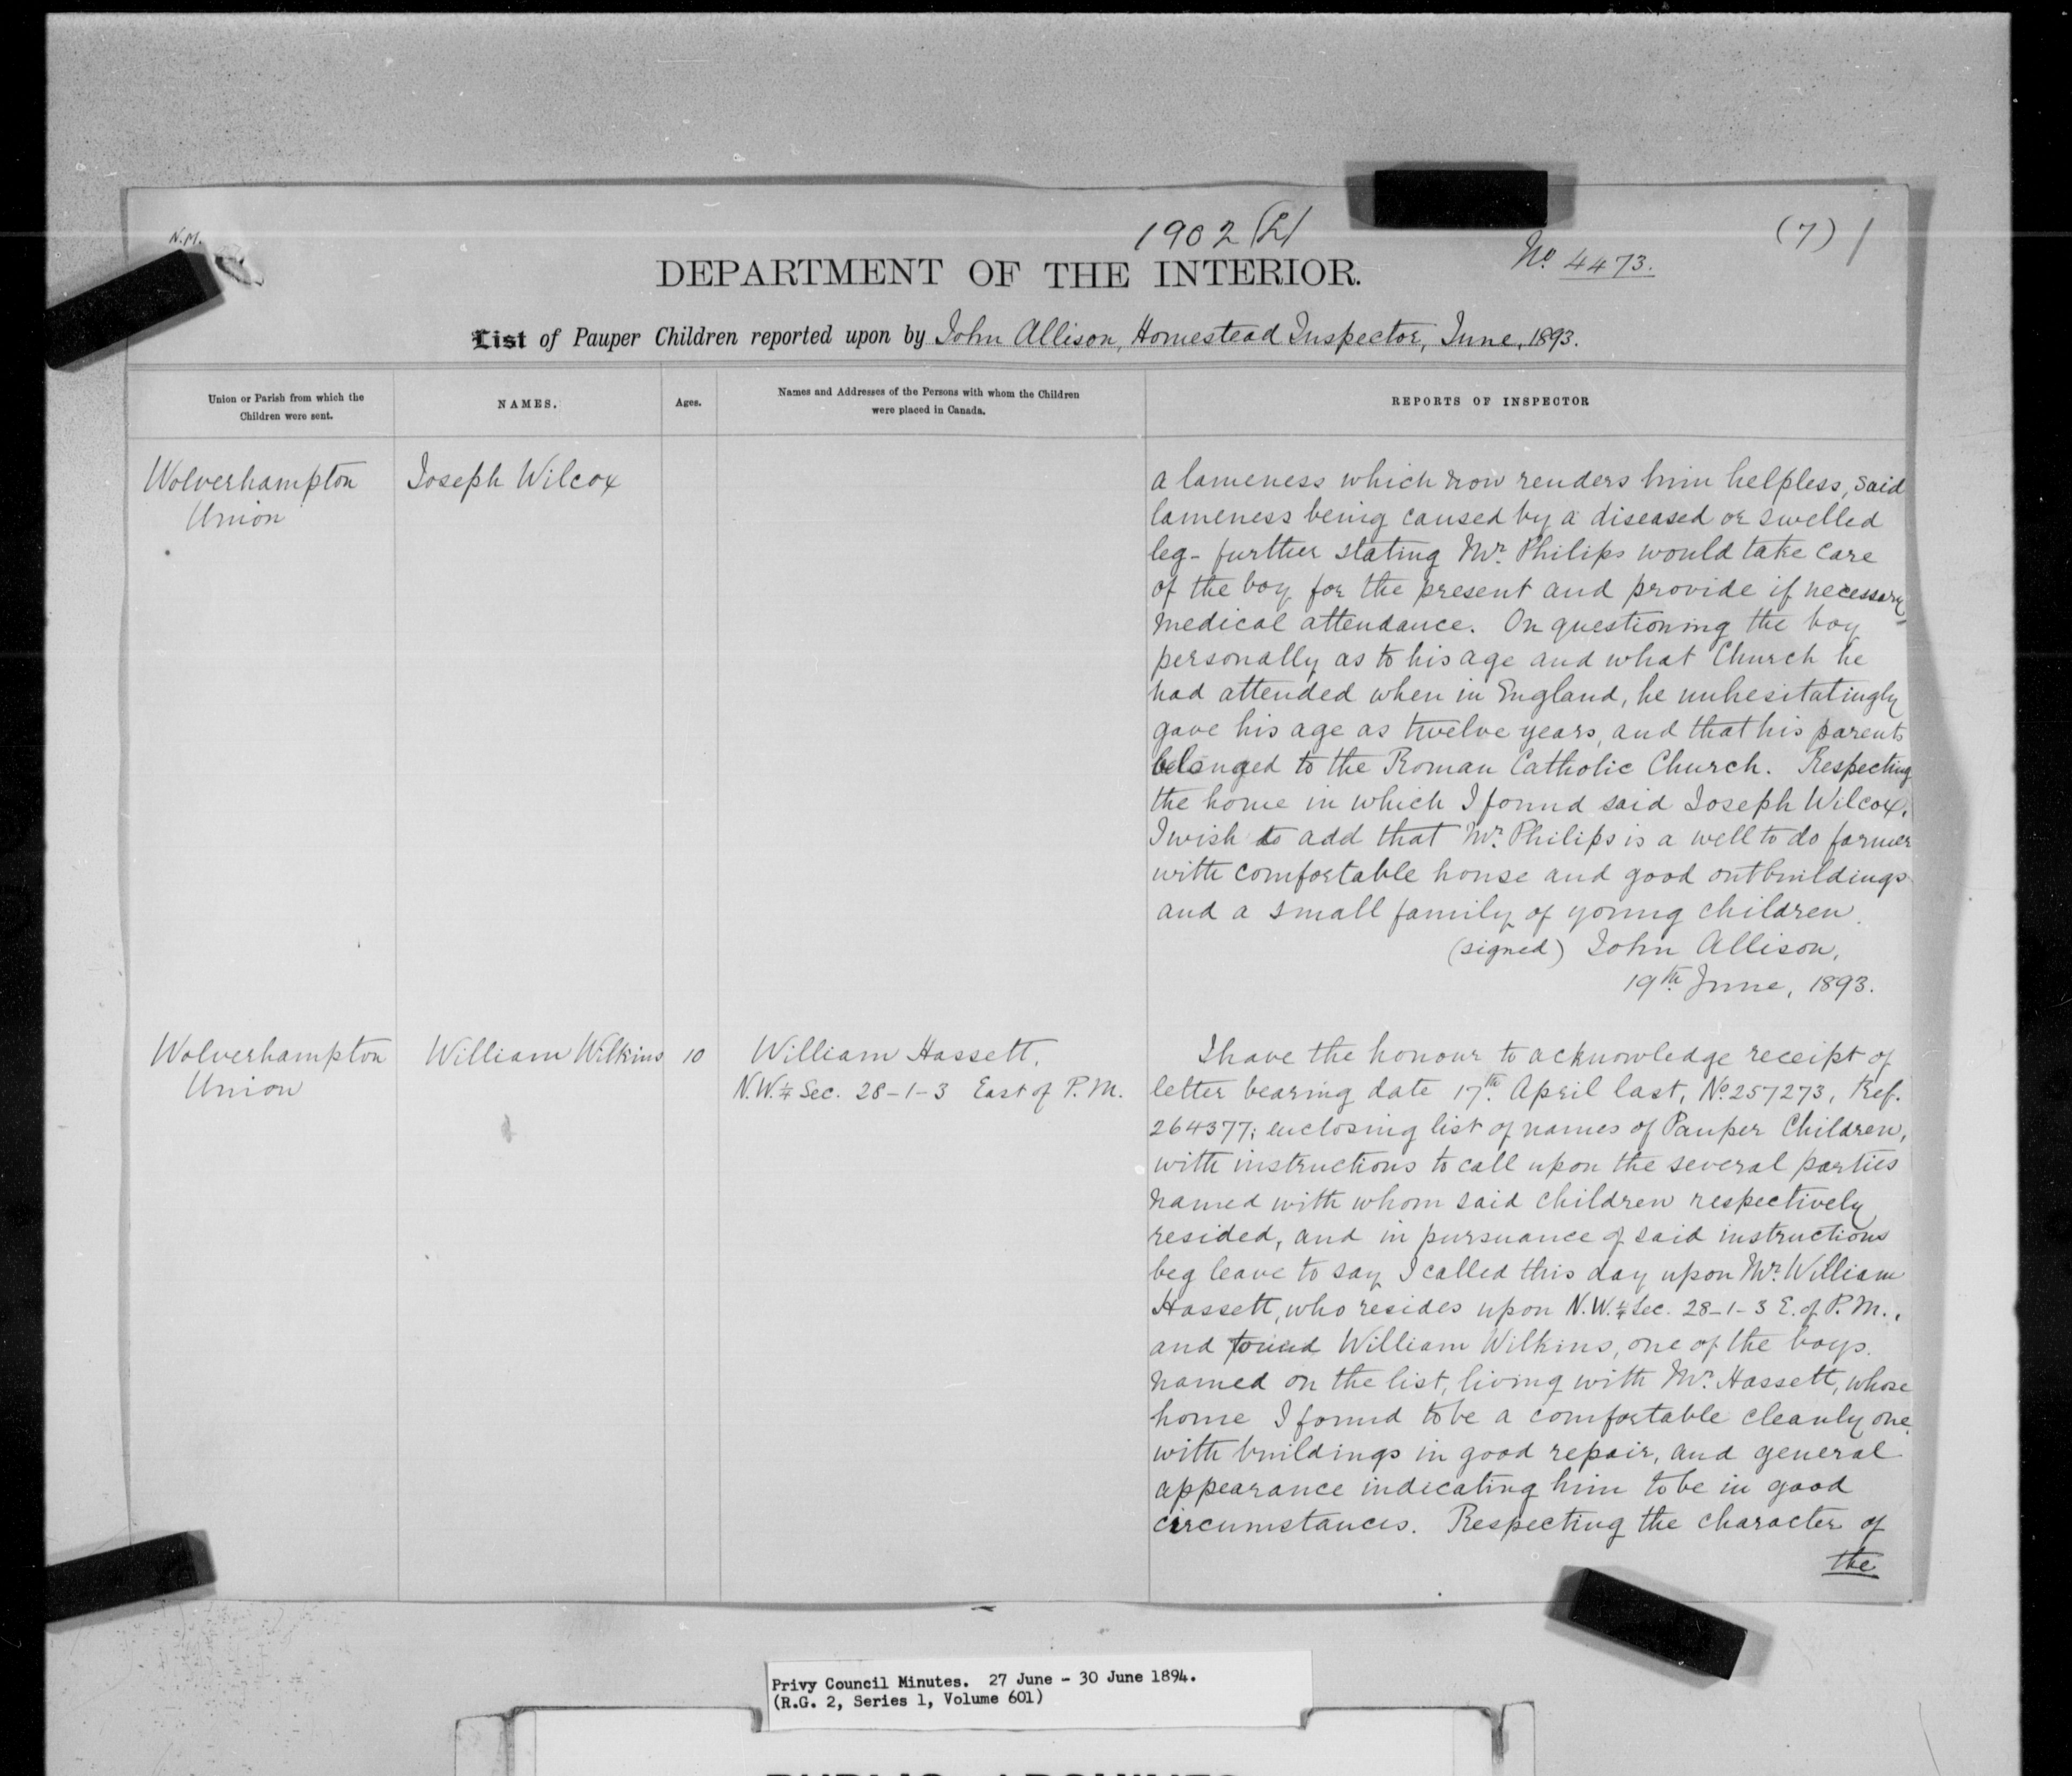 1902 (L)
N.M.
No. 4473.
(7) /
DEPARTMENT OF THE INTERIOR.
List of Pauper Children reported upon by John Allison, Homestead Inspector, June, 1893.
Union or Parish from which the
Children were sent.
NAMES.
Ages.
Names and Addresses of the Persons with whom the Children
were placed in Canada.
REPORTS OF INSPECTOR
Wolverhampton
Union
Joseph Wilcox
a lameness which now renders him helpless, said
lameness being caused by a diseased or swelled
leg - further stating Mr. Philips would take care
of the boy for the present and provide if necessary
medical attendance. On questioning the boy
personally as to his age and what Church he
had attended when in England, he unhesitatingly
gave his age as twelve years, and that his parents
belonged to the Roman Catholic Church. Respecting
the home in which I found said Joseph Wilcox,
I wish to add that Mr. Philips is a well to do farmer
with comfortable house and good outbuildings
and a small family of young children.
(signed) John Allison,
19th June, 1893.
Wolverhampton
Union
William Wilkins
10
William Hassett,
N.W. ¼ Sec. 28-1-3 East of P.M.
I have the honour to acknowledge receipt of
letter bearing date 17th April last, No. 257273, Ref.
264377; enclosing list of names of Pauper Children,
with instructions to call upon the several parties
named with whom said children respectively
resided, and in pursuance of said instructions
beg leave to say I called this day upon Mr. William
Hassett, who resides upon N.W. ¼ Sec. 28-1-3 E. of P.M.,
and found William Wilkins, one of the boys
named on the list, living with Mr. Hassett, whose
home I found to be a comfortable cleanly one,
with buildings in good repair, and general
appearance indicating him to be in good
circumstances. Respecting the character of
the
Privy Council Minutes. 27 June - 30 June 1894.
(R.G. 2, Series 1, Volume 601)
PUBLIC ARCHIVES